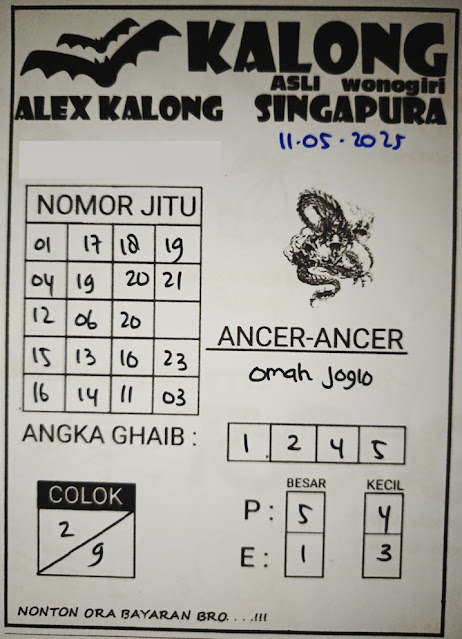 KALONG
ASLI wonogiri
ALEX KALONG SINGAPURA
11.05.2025
NOMOR JITU
01 17 18 19
04 19 20 21
12 06 20
15 13 10 23
16 14 11 03
ANCER-ANCER
omah Joglo
ANGKA GHAIB : 1. 2 4 5
COLOK
2
9
BESAR KECIL
P : 5 4
E : 1 3
NONTON ORA BAYARAN BRO. . . .!!!